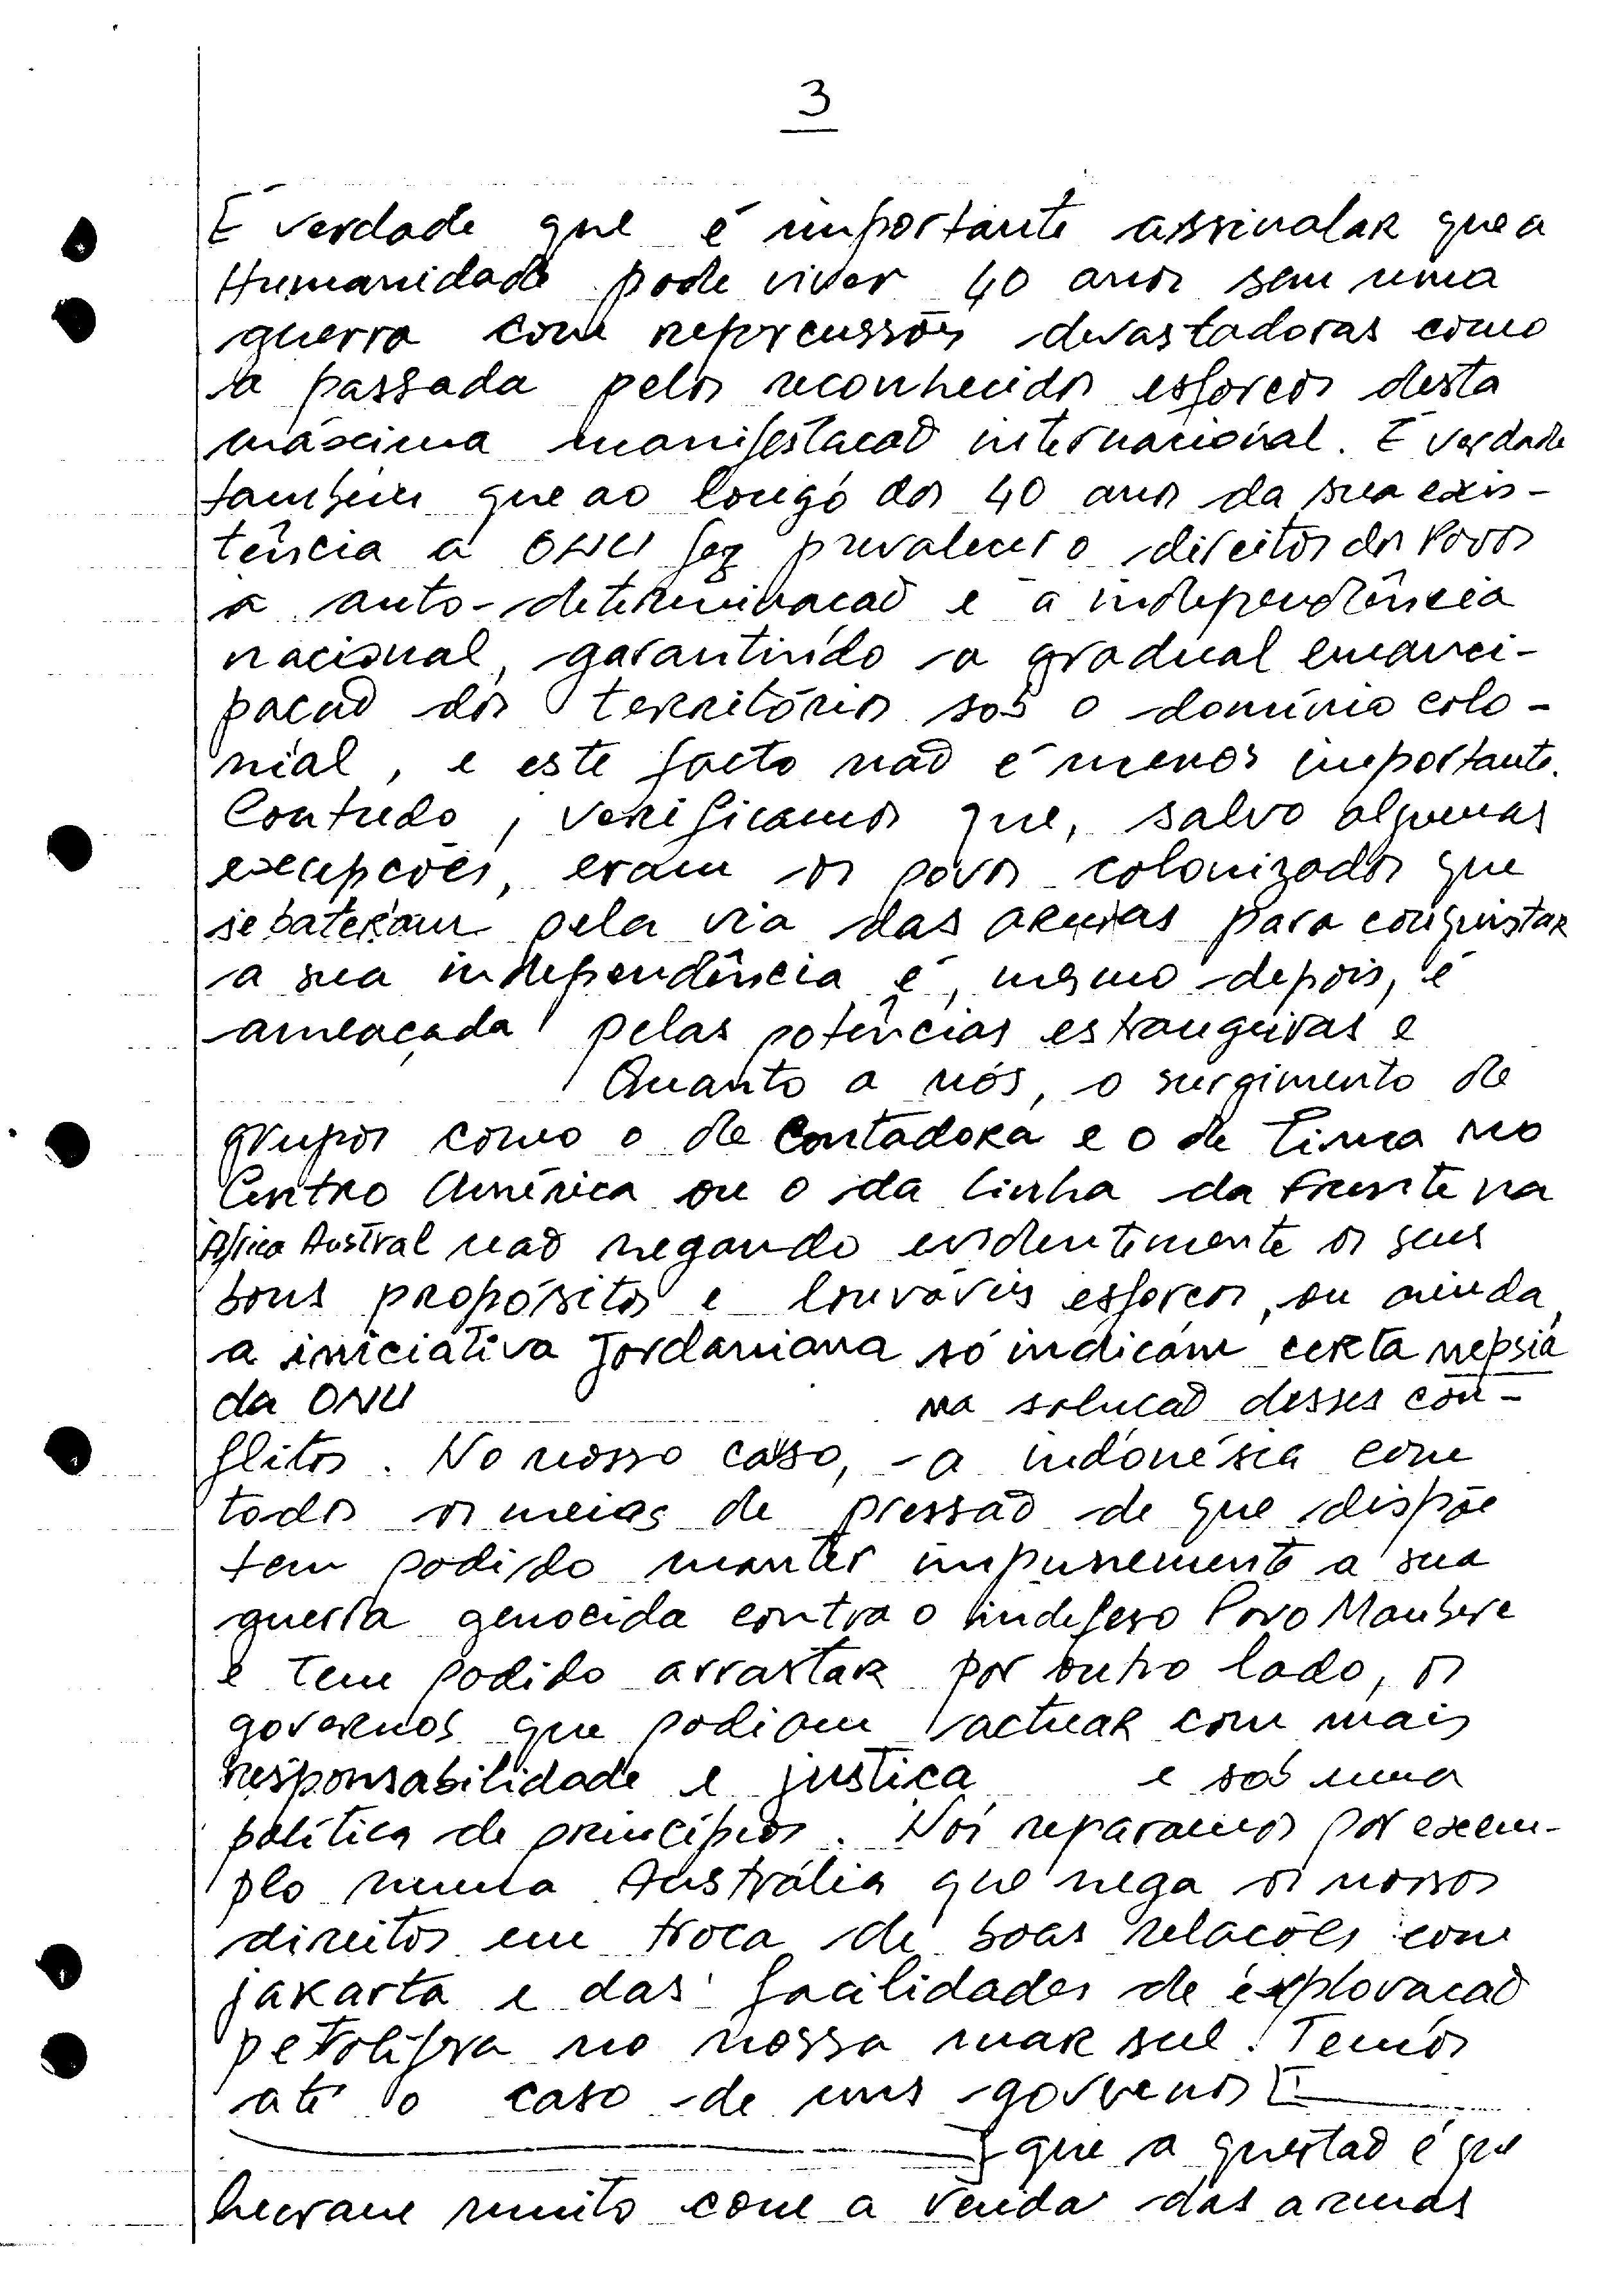 3
É verdade que é importante assinalar que a
Humanidade pode viver 40 anos sem uma
guerra com repercussões devastadoras como
a passada pelos reconhecidos esforcos desta
máxima manifestacaõ internacional. É verdade
também que ao longo dos 40 anos da sua exis-
tência a ONU fez prevalecer o direitos dos Povos
à auto-determinacaõ e à independência
nacional, garantindo a gradual emanci-
pacaõ dos territórios sob o domínio colo-
nial, e este facto naõ é menos importante.
Contudo, verificamos que, salvo algumas
excepcões, eram os povos colonizados que
se bateram pela via das armas para conquistar
a sua independência e, mesmo depois, é
ameaçada pelas potências estrangeiras e
Quanto a nós, o surgimento de
grupos como o de Contadora e o de Lima no
Centro América ou o da Linha da Frente na
África Austral naõ negando evidentemente os seus
bons propósitos e louváveis esforcos, ou ainda,
a iniciativa Jordaniana só indicam certa
da ONU na solucaõ desses con-
flitos. No nosso caso, a indonésia com
todos os meios de pressaõ de que dispõe
tem podido manter impunemente a sua
guerra genocida contra o indefeso Povo Maubere
e tem podido arrastar por outro lado, os
governos que podiam actuar com mais
responsabilidade e justica e sob uma
política de princípios. Nós reparamos por exem-
plo numa Austrália que nega os nossos
direitos em troca de boas relacões com
jakarta e das facilidades de exploracaõ
petrolífera no nossa mar sul. Temos
até o caso de uns governos [
] que a questaõ é que
lucram muito com a venda das armas